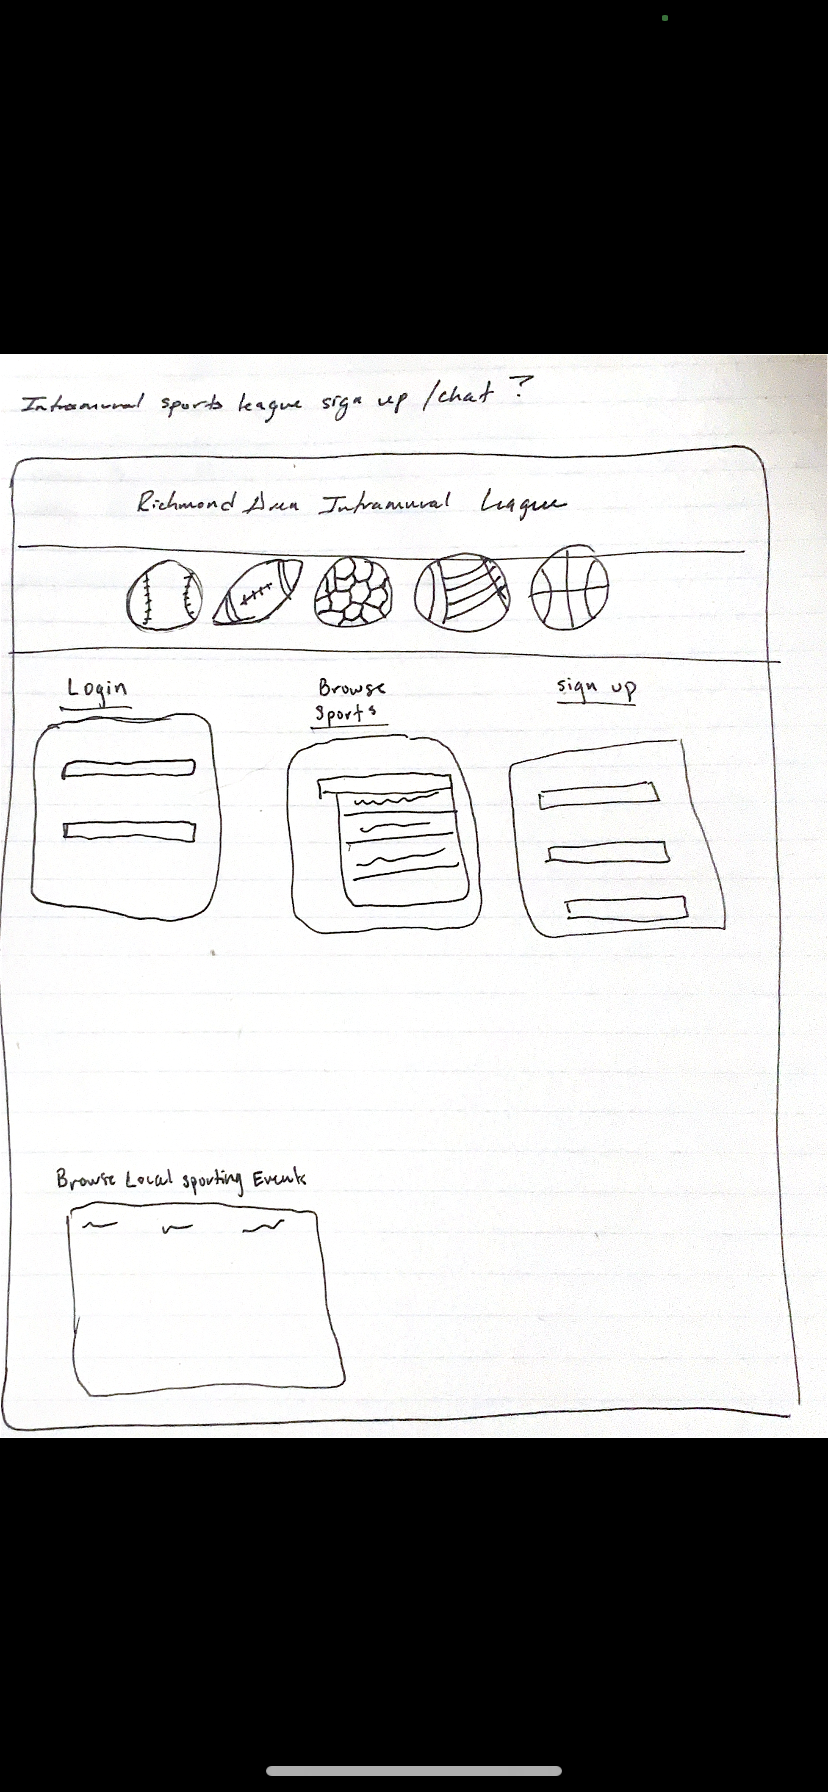 Intramural sports league sign up /chat ?
Richmond Area Intramural League
Login
Browse
Sports
sign up
Browse Local sporting Events